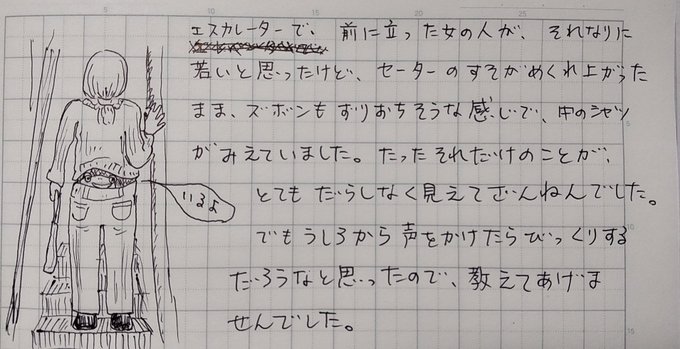 エスカレーターで、前に立った女の人が、それなりに
若いと思ったけど、セーターのすそがめくれ上がった
まま、ズボンもずりおちそうな感じで、中のシャツ
がみえていました。たったそれだけのことが、
とてもだらしなく見えてざんねんでした。
でもうしろから声をかけたらびっくりする
だろうなと思ったので、教えてあげま
せんでした。
いるよ
5
10
15
20
25
30
5
10
15